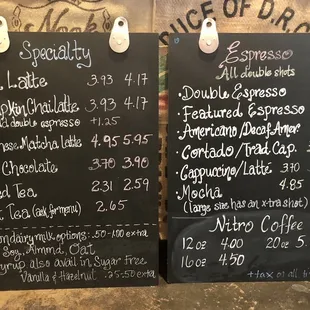 Nook
UCE OF D.R.C
Specialty
Latte 3.93 4.17
Chai Latte 3.93 4.17
double espresso +1.25
Matcha Latte 4.95 5.95
Chocolate 3.70 3.90
Tea 2.31 2.59
Tea (ask for menu) 2.65
dairy milk options: .50-1.00 extra
Soy, Almond, Oat
yrup also avail in Sugar Free
Vanilla & Hazelnut .25-.50 extra
Espresso
All double shots
• Double Espresso
• Featured Espresso
• Americano/Decaf Amer.
• Cortado/Trad Cap. 3
• Cappuccino/Latte 3.70
• Mocha 4.85
(large size has an x-tra shot)
Nitro Coffee
12oz 4.00 20oz 5.
16oz 4.50
+tax on all